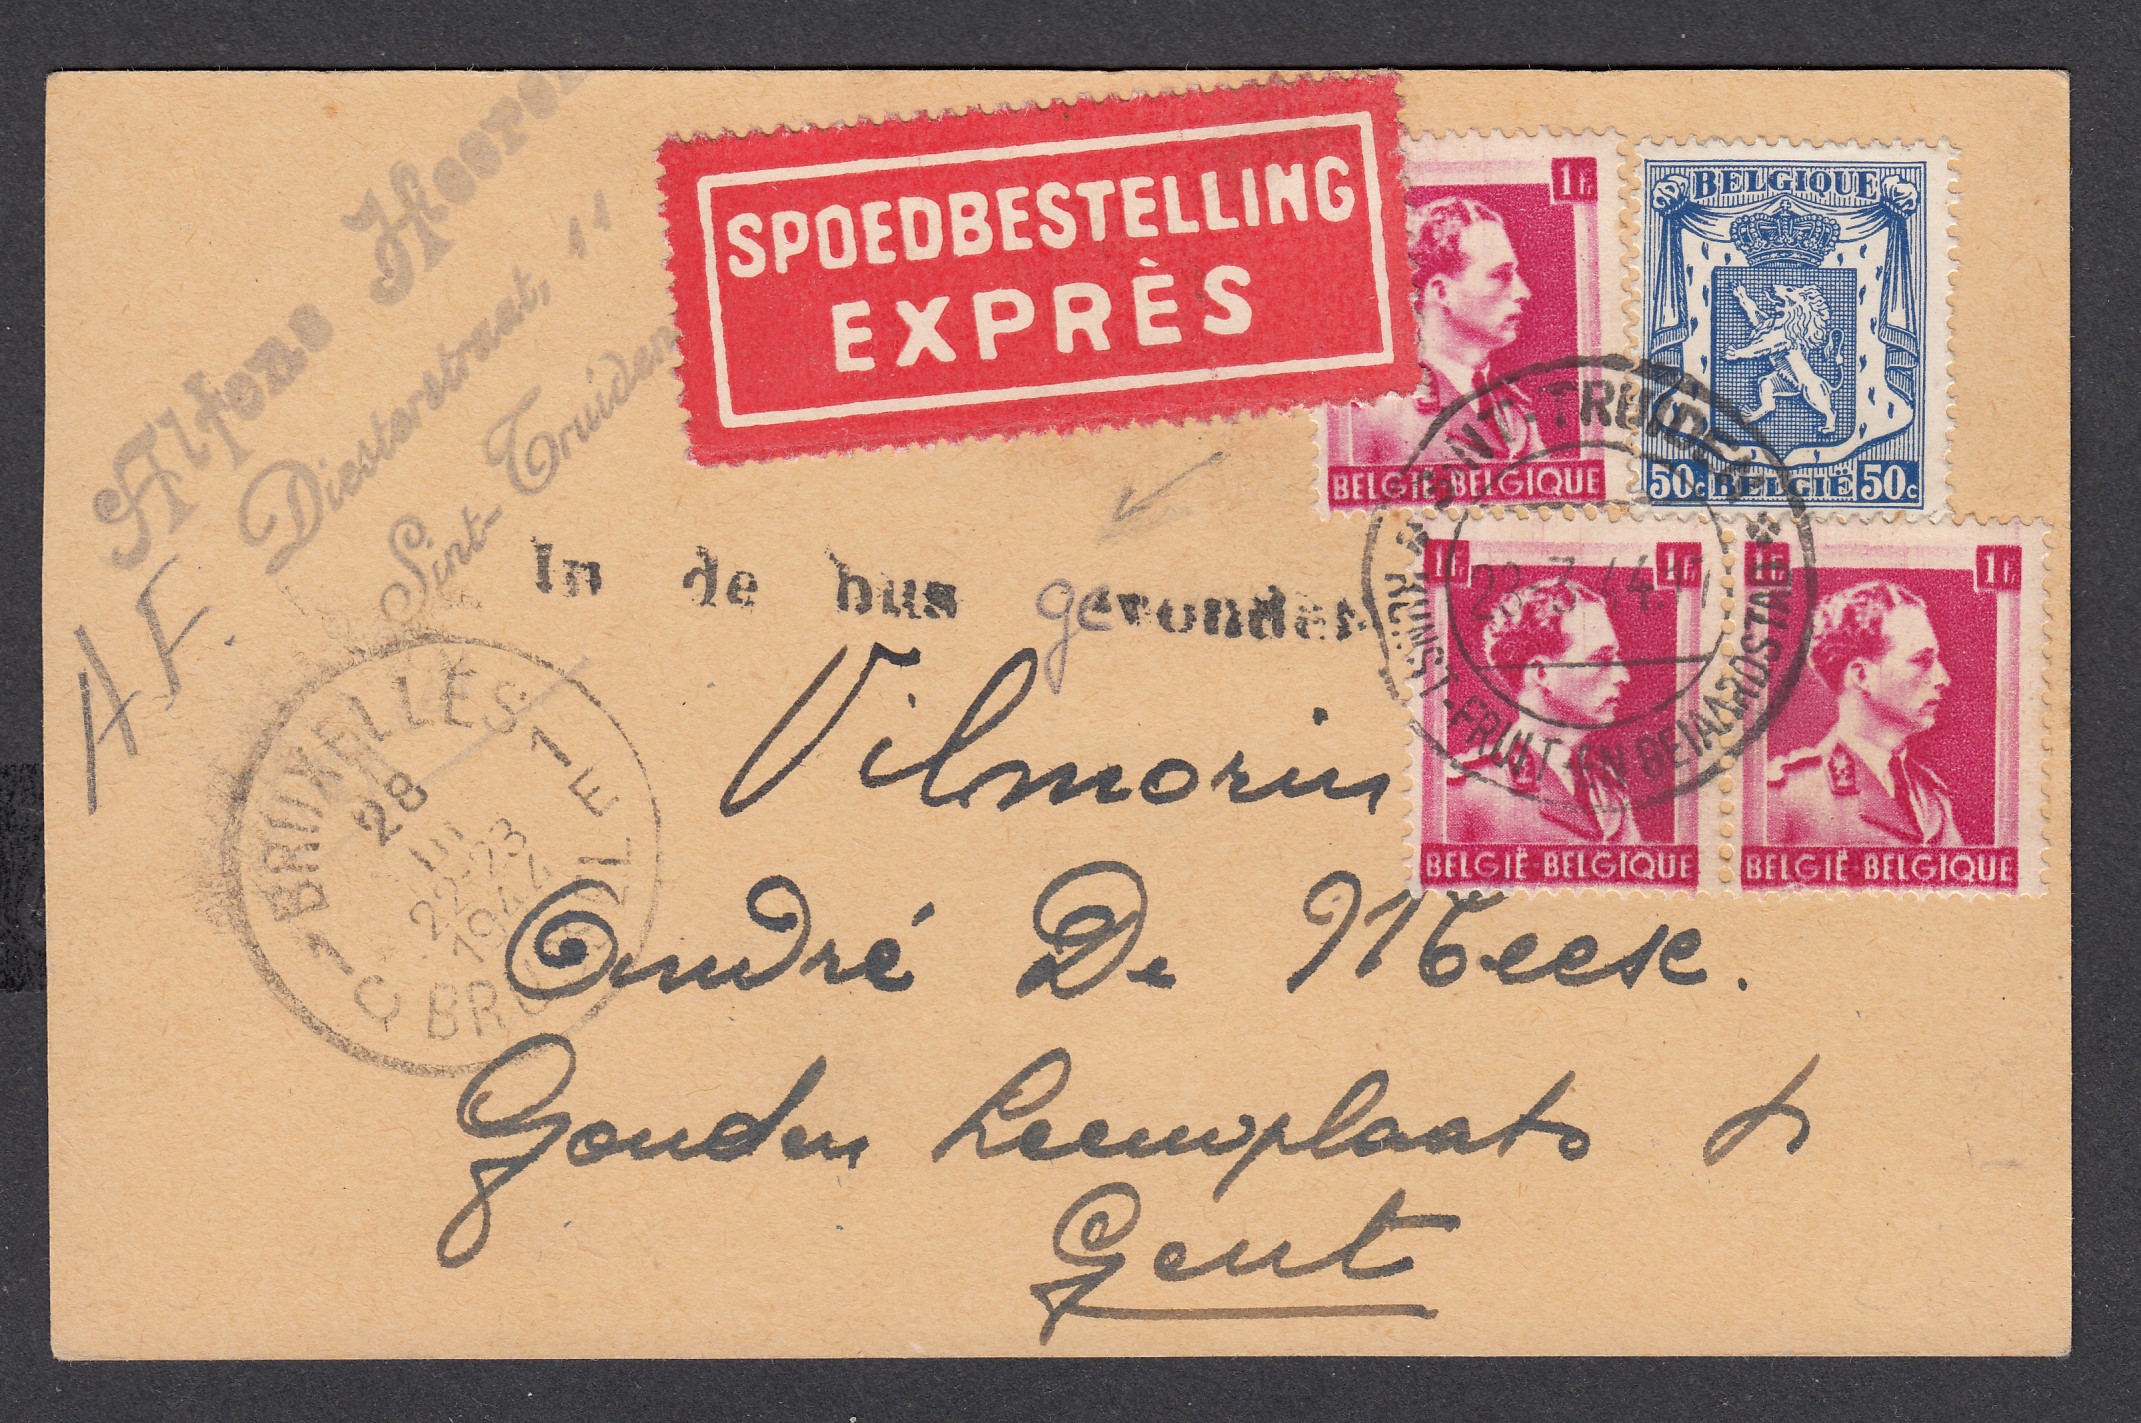 Alfons
Diesterstraat, 11
Sint-Truiden
SPOEDBESTELLING
EXPRÈS
1 Fr
BELGIË-BELGIQUE
BELGIQUE
50c BELGIË 50c
SINT-TRUIDEN
28 -3 44
KUNST-FRUIT-EN BEIAARDSTAD
1 Fr 1 Fr
BELGIË-BELGIQUE
1 Fr 1 Fr
BELGIË-BELGIQUE
In de bus gevonden
AF.
1 BRUXELLES 1
28
III
22-23
1944
Vilmorin
André De Meese.
Gouden Leeuwplaats
Gent